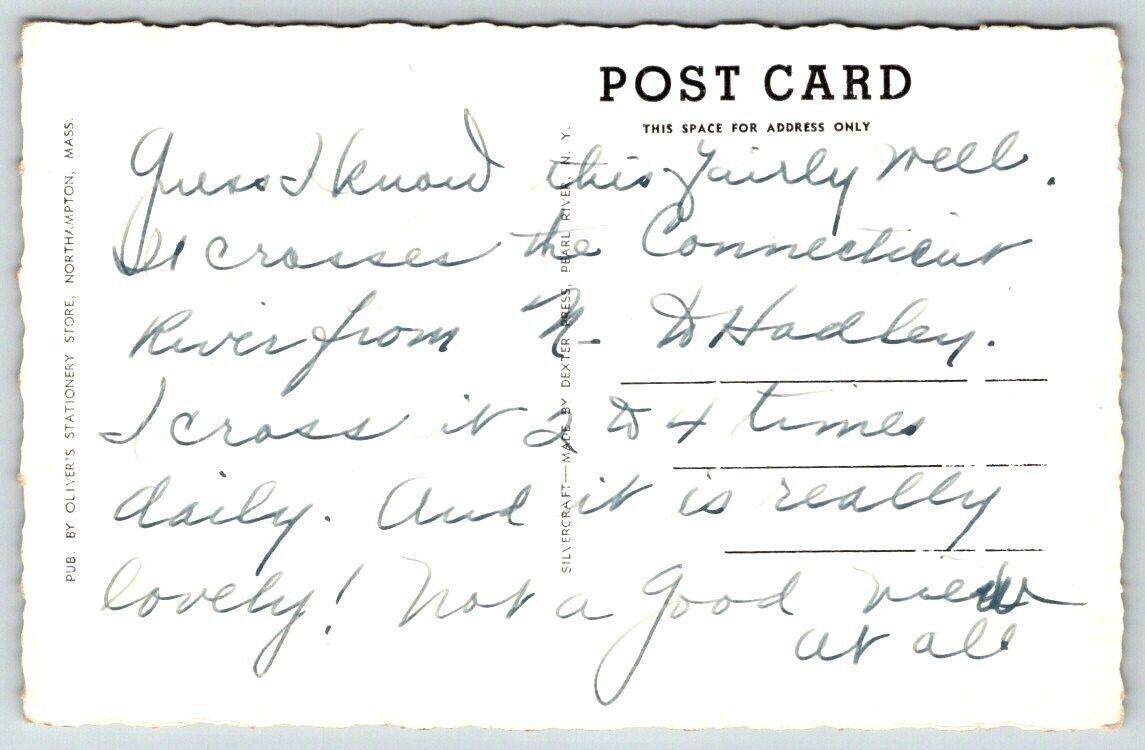 POST CARD
THIS SPACE FOR ADDRESS ONLY
Guess I know this fairly well.
It crosses the Connecticut
River from N. to Hadley.
I cross it 2 to 4 times
daily. And it is really
lovely! Not a good view
at all
PUB. BY OLIVER'S STATIONERY STORE, NORTHAMPTON, MASS.
SILVERCRAFT—MADE BY DEXTER PRESS, PEARL RIVER, N. Y.